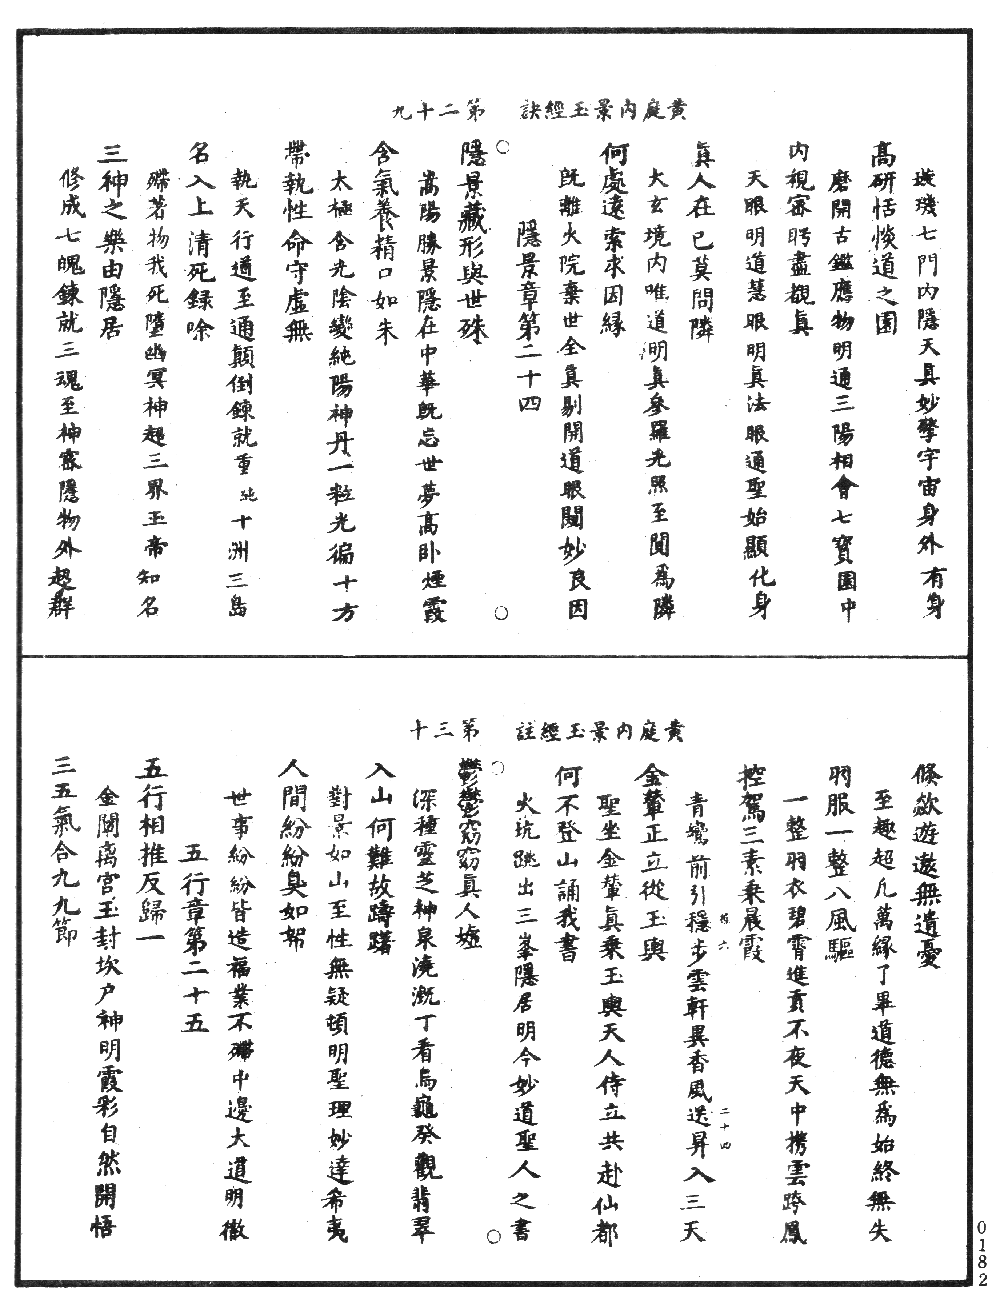 黃庭內景玉經訣　第二十九
璇璣七門內隱天具妙擎宇宙身外有身
高研恬惔道之園
磨開古鑑應物明通三陽相會七寶園中
內視密眄盡覩真
天眼明道慧眼明真法眼通聖始顯化身
真人在己莫問隣
大玄境內唯道明真參羅光照至聞為隣
何處遠索求因緣
既離火院棄世全真剔開道眼闡妙良因
隱景章第二十四
○隱景藏形與世殊
嵩陽勝景隱在中華既忘世夢高卧煙霞○
含氣養精口如朱
太極含光陰變純陽神丹一粒光徧十方
帶執性命守虛無
執天行道至通顛倒鍊就重 十洲三島
名入上清死録除
殢著物我死墮幽冥神超三界玉帝知名
三神之樂由隱居
修成七魄鍊就三魂至神寂隱物外超群
黃庭內景玉經註　第三十
倏欻遊遨無遺憂
至趣超凡萬緣了畢道德無為始終無失
羽服一整八風驅
一整羽衣碧霄進貢不夜天中携雲跨鳳
控駕三素乘晨霞
青鸞前引穩步雲軒異香風送昇入三天
六
二十四
金輦正立從玉輿
聖坐金輦真乘玉輿天人侍立共赴仙都
何不登山誦我書
火坑跳出三峯隱居明今妙道聖人之書
○鬱鬱窈窈真人墟
深種靈芝神泉澆溉丁看烏龜癸觀翡翠○
入山何難故躊躇
對景如山至性無疑頓明聖理妙達希夷
人間紛紛臭如帤
世事紛紛皆造福業不殢中邊大道明徹
五行章第二十五
五行相推反歸一
金闕离宮玉封坎户神明霞彩自然開悟
三五氣合九九節
0182